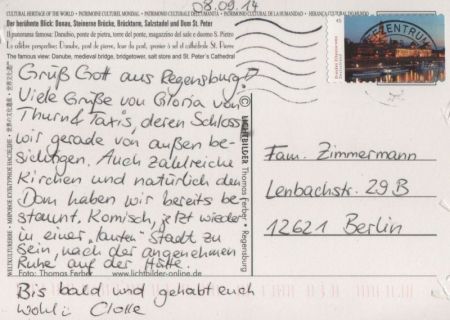 08.09.14
CULTURAL HERITAGE OF THE WORLD • PATRIMOINE CULTUREL MONDIAL • PATRIMONIO CULTURALE DELL'UMANITÀ • PATRIMONIO CULTURAL DE LA HUMANIDAD • HERANÇA CULTURAL DO MUNDO
Der berühmte Blick: Donau, Steinerne Brücke, Brückturm, Salzstadel und Dom St. Peter
Il panorama famoso: Danubio, ponte di pietra, torre del ponte, magazzino del sale e duomo S. Pietro
La célèbre perspective: Danube, pont de pierre, tour du pont, grenier à sel et cathédrale St. Pierre
The famous view: Danube, medieval bridge, bridgetower, salt store and St. Peter's Cathedral
Grüß Gott aus Regensburg!
Viele Grüße von Gloria von
Thurn & Taxis, deren Schloss
wir gerade von außen be-
sichtigen. Auch zahlreiche
Kirchen und natürlich den
Dom haben wir bereits be-
staunt. Komisch, jetzt wieder
in einer „lauten" Stadt zu
sein, nach der angenehmen
Ruhe auf der Hütte.
Foto: Thomas Ferber
www.lichtbilder-online.de
Bis bald und gehabt euch
wohl:
© LICHTBILDER Thomas Ferber • Regensburg
WELTKULTURERBE
BRIEFZENTRUM
45
Fam. Zimmermann
Lenbachstr. 29B
12621 Berlin